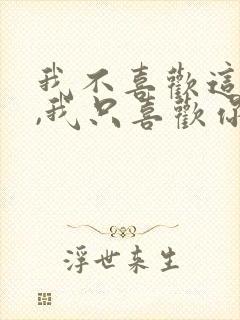 我不喜歡這
,我只喜歡你
浮世未生